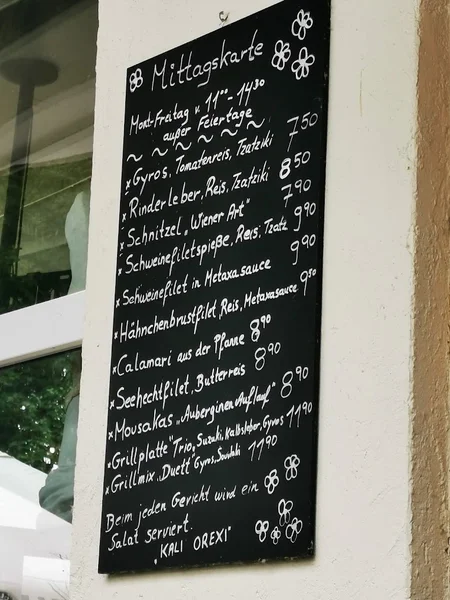 Mittagskarte
Mont-Freitag v. 11⁰⁰-14³⁰
außer Feiertage
~ ~ ~ ~ ~ ~ ~
x Gyros, Tomatenreis, Tzatziki 7⁵⁰
x Rinderleber, Reis, Tzatziki 8⁵⁰
x Schnitzel "Wiener Art" 7⁹⁰
x Schweinefiletspieße, Reis, Tzatz 9⁹⁰
x Schweinefilet in Metaxasauce 9⁹⁰
x Hähnchenbrustfilet, Reis, Metaxasauce 9⁵⁰
x Calamari aus der Pfanne 8⁹⁰
x Seehechtfilet, Butterreis 8⁹⁰
x Mousakas „Auberginen Auflauf" 8⁹⁰
x Grillplatte "Trio, Suzuki, Kalbsleber, Gyros 11⁹⁰
x Grillmix „Duett" Gyros, Suzuki 11⁹⁰
Beim jeden Gericht wird ein
Salat serviert.
„KALI OREXI"